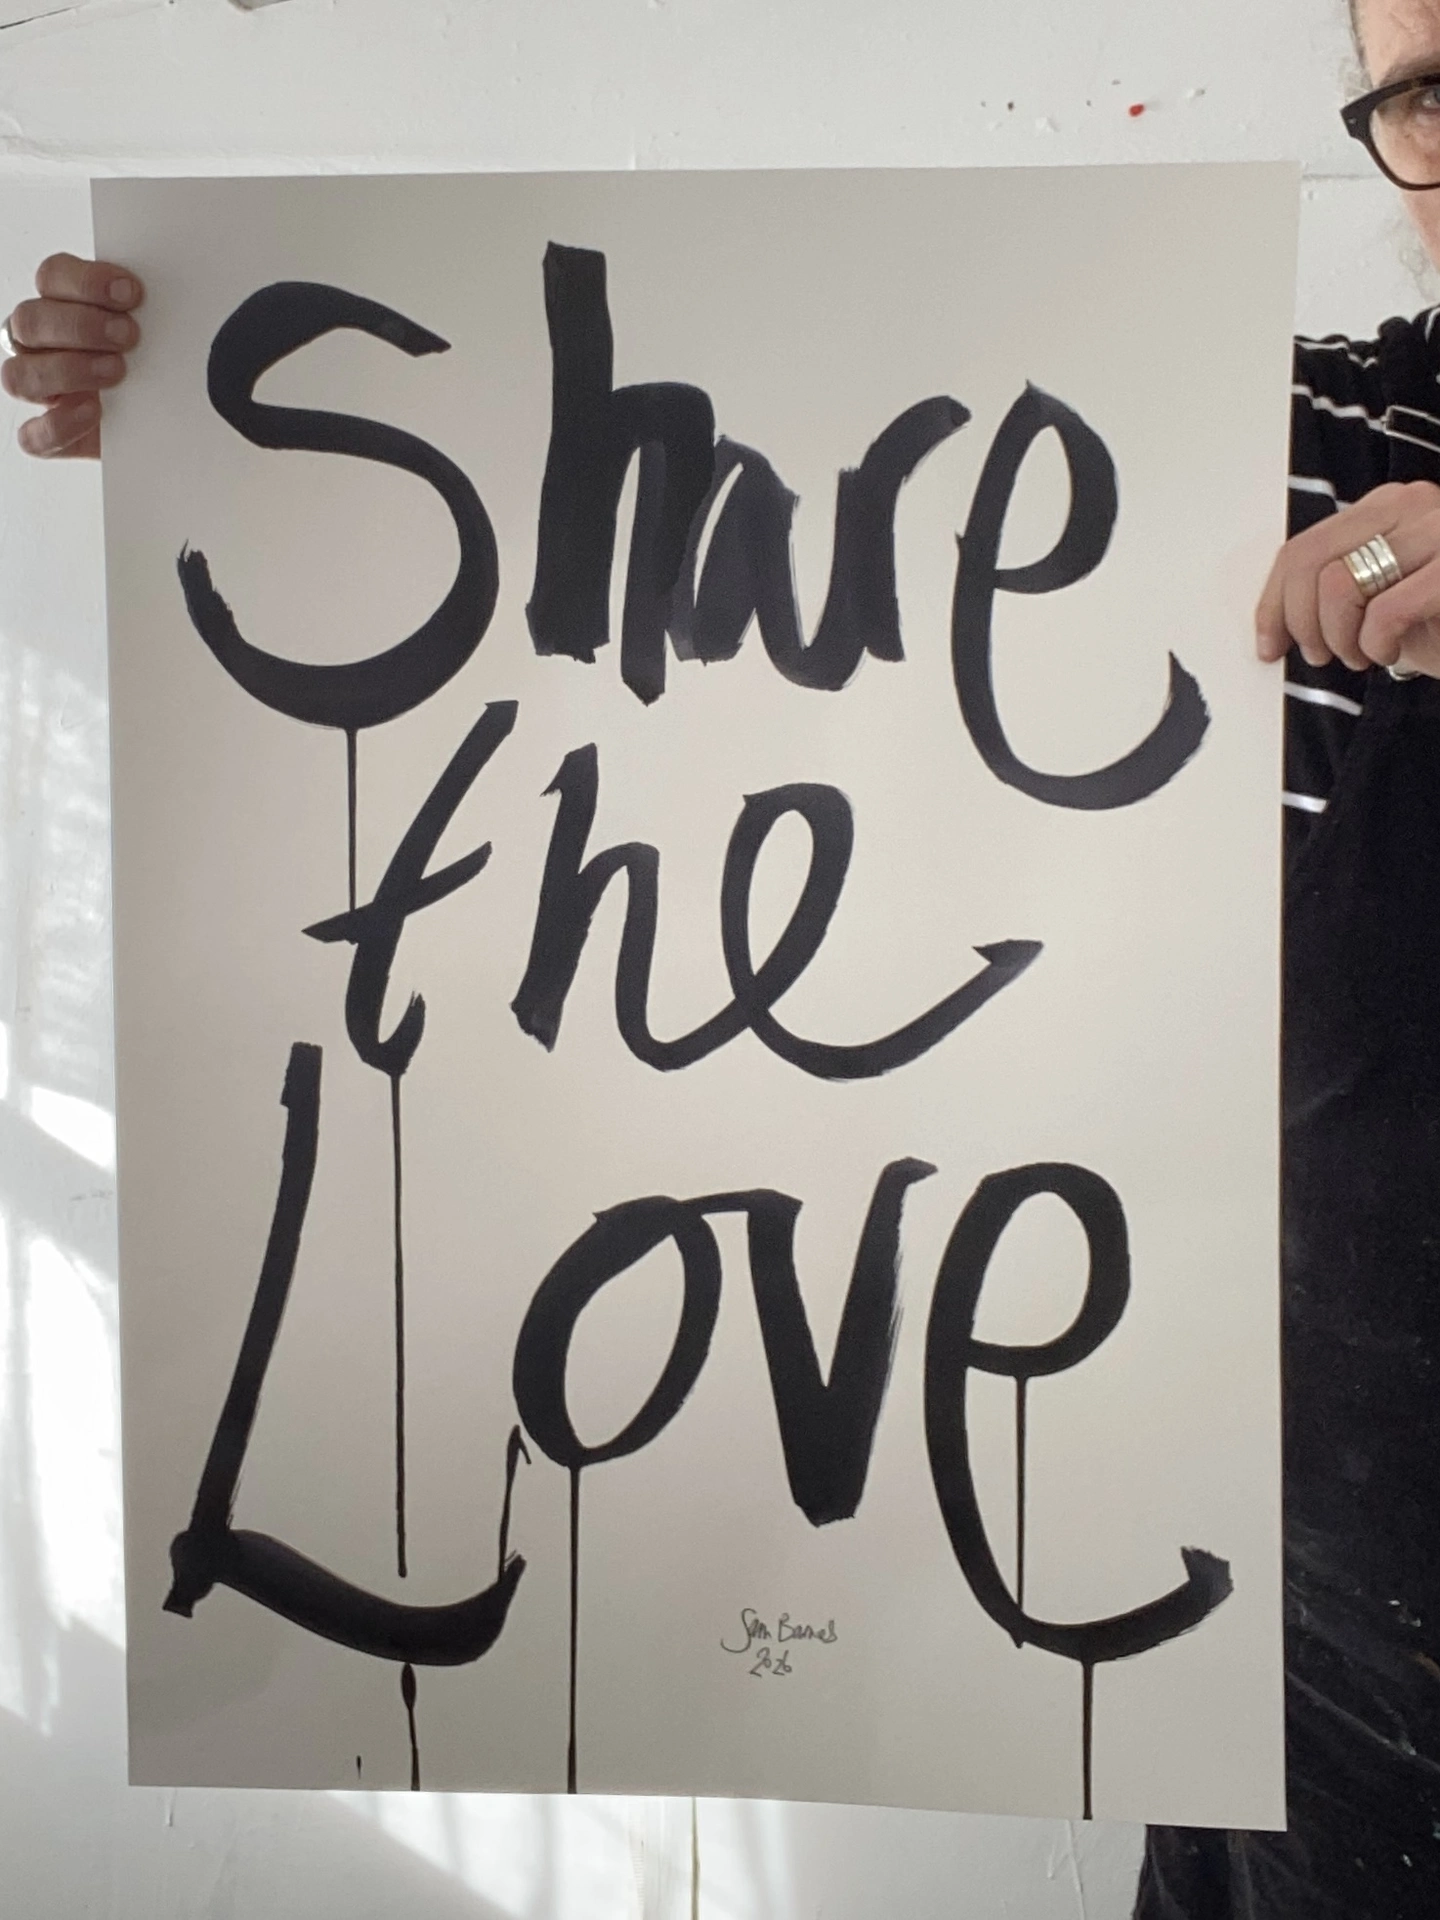 Share
the
Love
Sam Barnes
2026